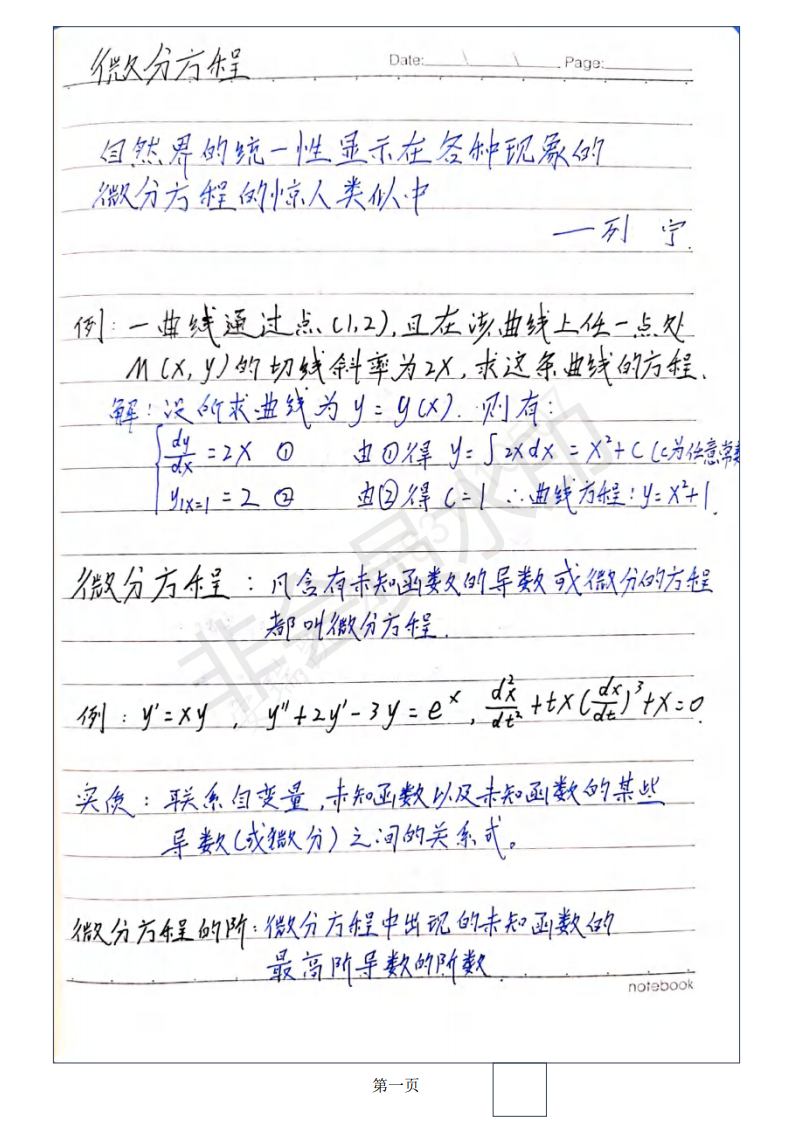 微分方程
Date: \ \ Page:
自然界的统一性显示在各种现象的
微分方程的惊人类似中
—列 宁.
例: 一曲线通过点(1,2), 且在该曲线上任一点处
M(x,y)的切线斜率为2x, 求这条曲线的方程.
解: 设所求曲线为 y=y(x). 则有:
dy/dx = 2x ① 由①得 y=∫2xdx = x²+C (C为任意常数
y|x=1 = 2 ② 由②得 C=1 ∴曲线方程: y=x²+1.
微分方程: 凡含有未知函数的导数或微分的方程
都叫微分方程.
例: y'=xy , y''+2y'-3y=eˣ, d²x/dt² + tx(dx/dt)³+x=0.
实质: 联系自变量,未知函数以及未知函数的某些
导数(或微分)之间的关系式。
微分方程的阶: 微分方程中出现的未知函数的
最高阶导数的阶数.
notebook
非会员水印
第一页